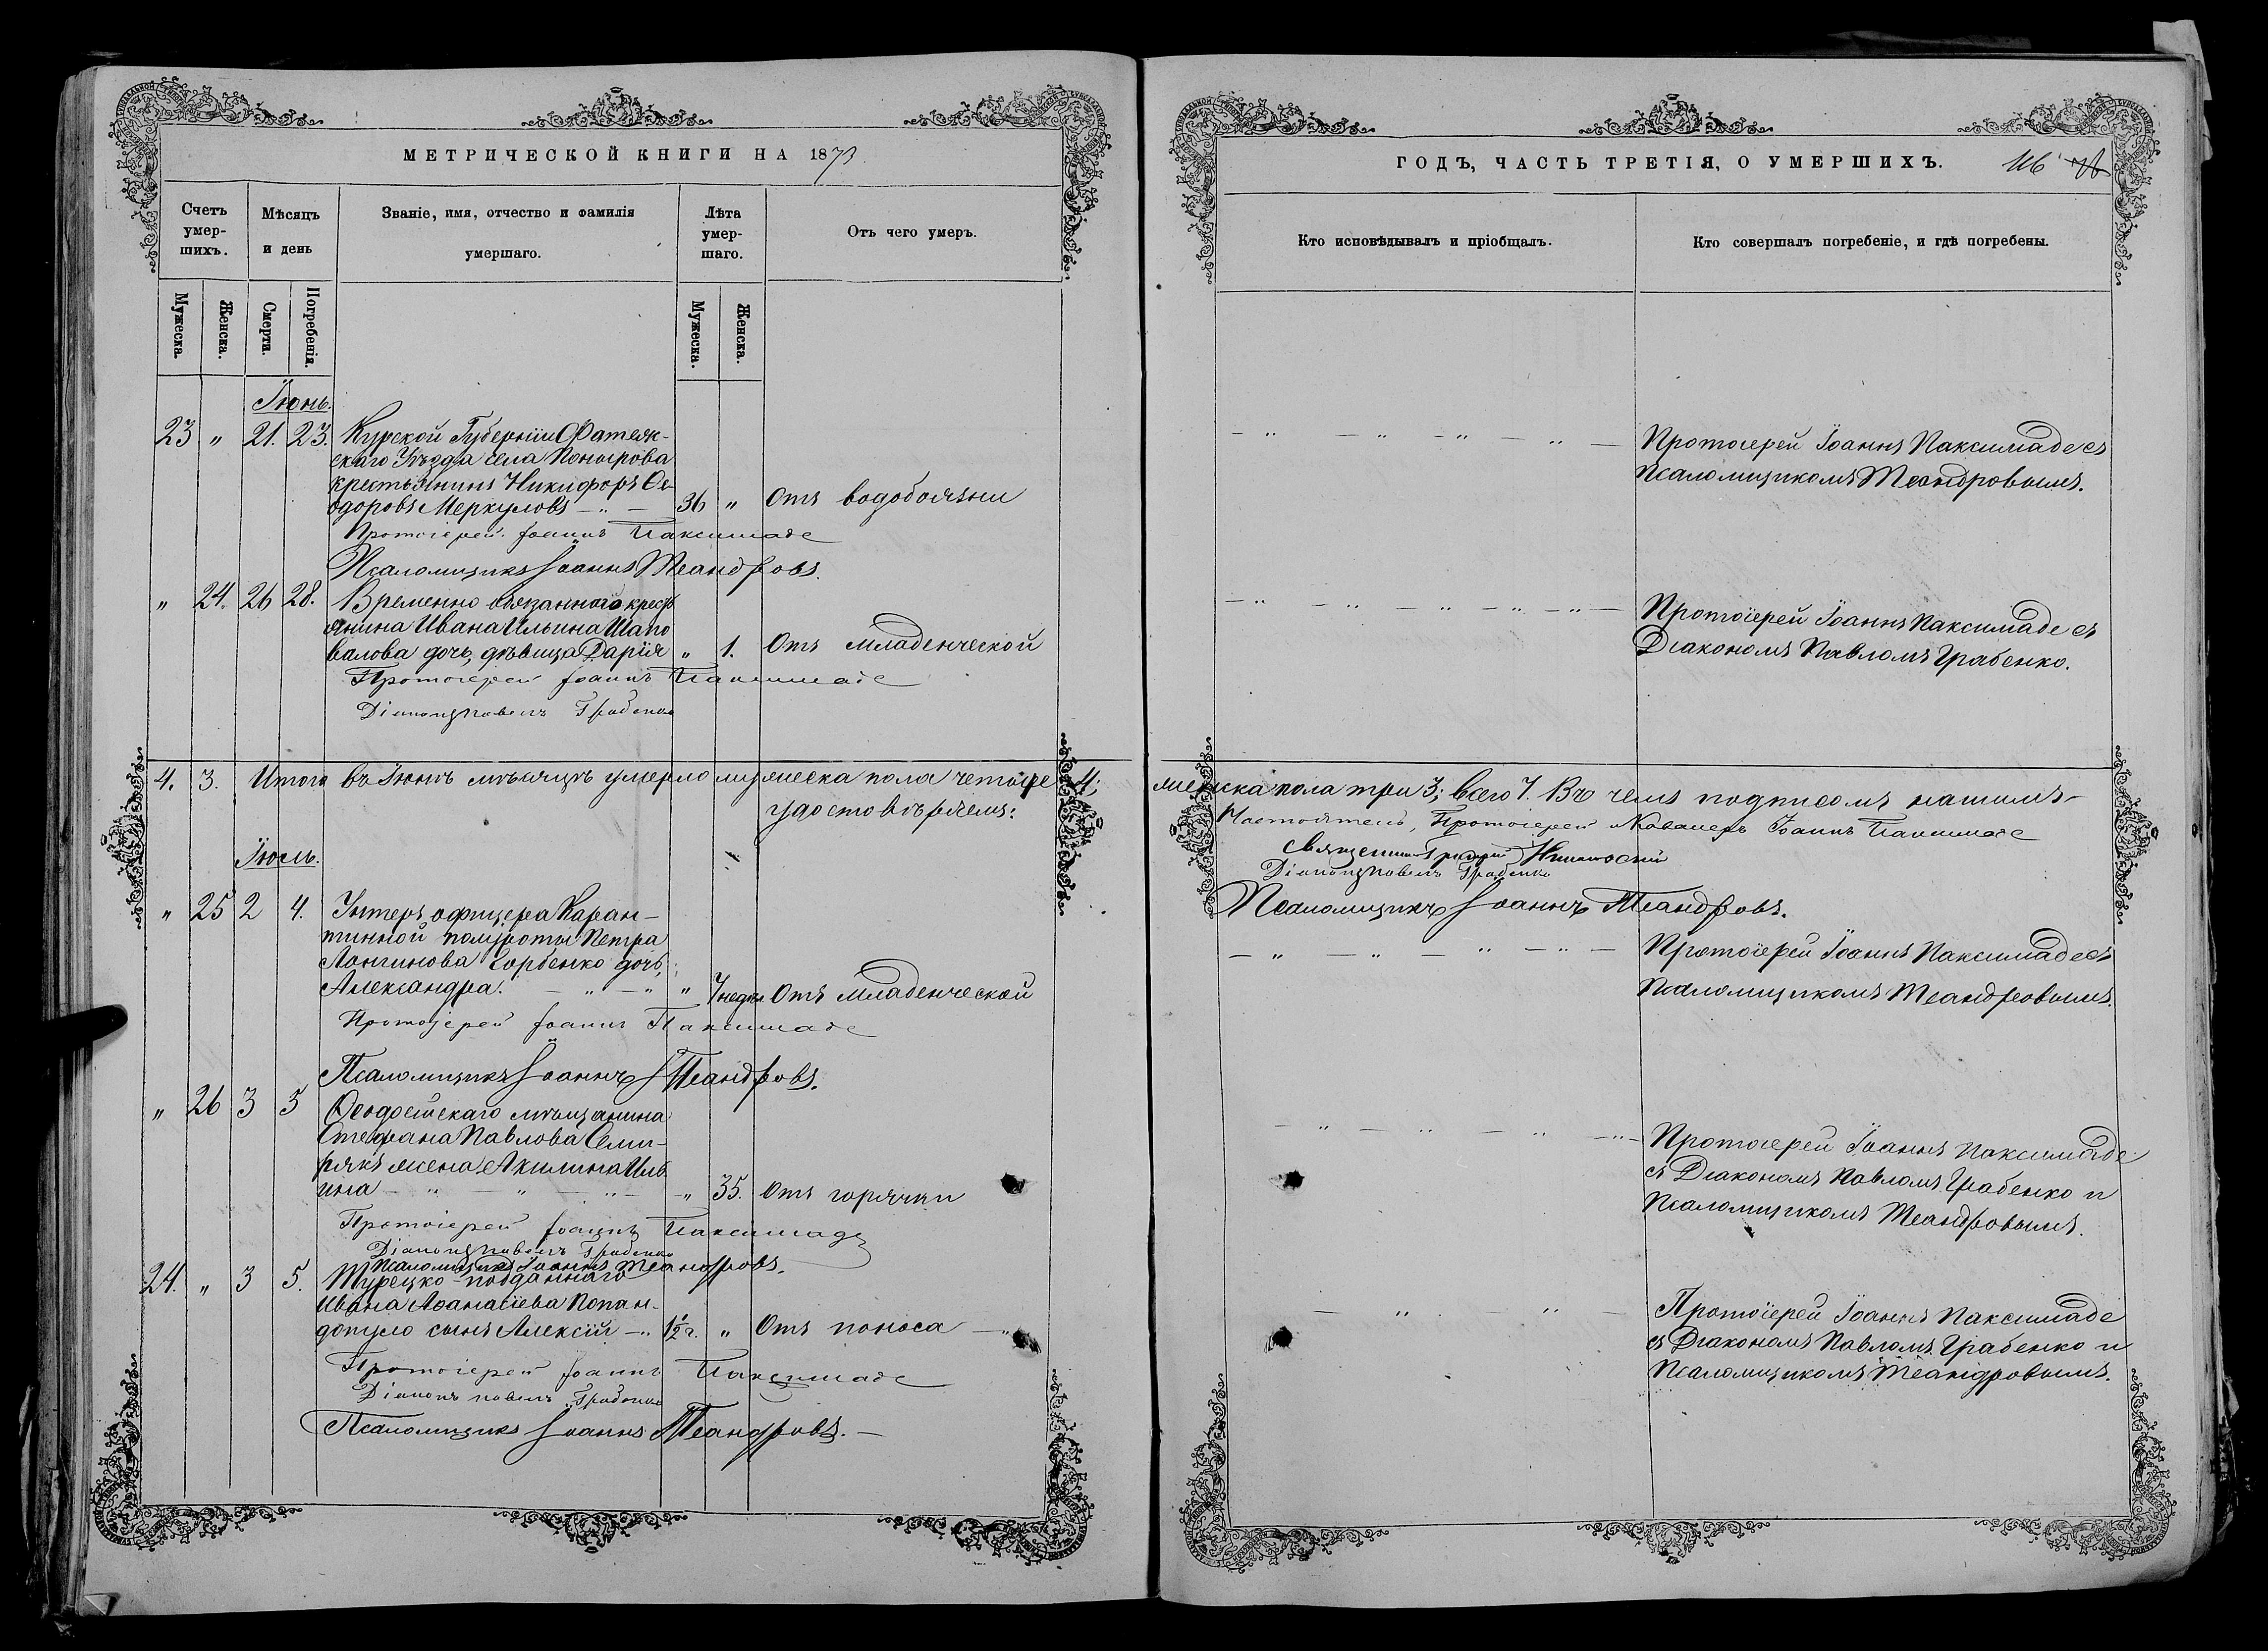 МЕТРИЧЕСКОЙ КНИГИ НА 1873
Счетъ умер-шихъ.
Мѣсяцъ и день
Званіе, имя, отчество и фамилія умершаго.
Лѣта умер-шаго.
Отъ чего умеръ.
Мужеска.
Женска.
Смерти.
Погребенія.
Мужеска.
Женска.
Іюнь.
23 " 21. 23. Курской Губерніи Фатеж-
скаго Уѣзда села Понырова
крестьянинъ Никифоръ Ѳе-
одоровъ Меркуловъ — " — 36 " Отъ водобоязни
Протоіерей Іоаннъ Паксимаде
Псаломщикъ Іоаннъ Теандровъ.
" 24. 26 28. Временно обязаннаго крест
янина Ивана Ильина Шапо
валова дочь, дѣвица Дарія " 1. Отъ младенческой
Протоіерей Іоаннъ Паксимаде
Діаконъ Павелъ Грабенко
4. 3. Итого въ Іюнѣ мѣсяцѣ умерло мужеска пола четыре 4;
удостовѣряемъ:
Іюль.
" 25 2 4. Унтеръ офицера Каран-
тинной полуроты Петра
Лонгинова Горбенко дочь,
Александра. — " — " " 7 недѣл Отъ младенческой
Протоіерей Іоаннъ Паксимаде
Псаломщикъ Іоаннъ Теандровъ.
" 26 3 5 Ѳеодосійскаго мѣщанина
Стефана Павлова Семи-
рякъ жена Акилина Иль
ина — " — " — " — " 35. Отъ горячки
Протоіерей Іоаннъ Паксимаде
Діаконъ Павелъ Грабенко
Псаломщикъ Іоаннъ Теандровъ.
24. " 3 5. Турецко-подданнаго
Ивана Аѳанасіева Попан-
допуло сынъ Алексій — " 1½ г. " Отъ поноса — "
Протоіерей Іоаннъ Паксимаде
Діаконъ Павелъ Грабенко
Псаломщикъ Іоаннъ Теандровъ. —
ГОДЪ, ЧАСТЬ ТРЕТІЯ, О УМЕРШИХЪ.
116
Кто исповѣдывалъ и пріобщалъ.
Кто совершалъ погребеніе, и гдѣ погребены.
— " — " — " — " — Протоіерей Іоаннъ Паксимаде съ
Псаломщикомъ Теандровымъ.
— " — " — " — " — " — Протоіерей Іоаннъ Паксимаде съ
Діакономъ Павломъ Грабенко.
женска пола три 3; всего 7. Въ чемъ подписомъ нашимъ-
Настоятель, Протоіерей и Кавалеръ Іоаннъ Паксимаде
Священникъ Григорій
Діаконъ Павелъ Грабенко
Псаломщикъ Іоаннъ Теандровъ.
— " — " — " — " — Протоіерей Іоаннъ Паксимаде съ
Псаломщикомъ Теандровымъ.
— " — " — " — " — Протоіерей Іоаннъ Паксимаде
съ Діакономъ Павломъ Грабенко и
Псаломщикомъ Теандровымъ.
— " — " — Протоіерей Іоаннъ Паксимаде
съ Діакономъ Павломъ Грабенко и
Псаломщикомъ Теандровымъ.